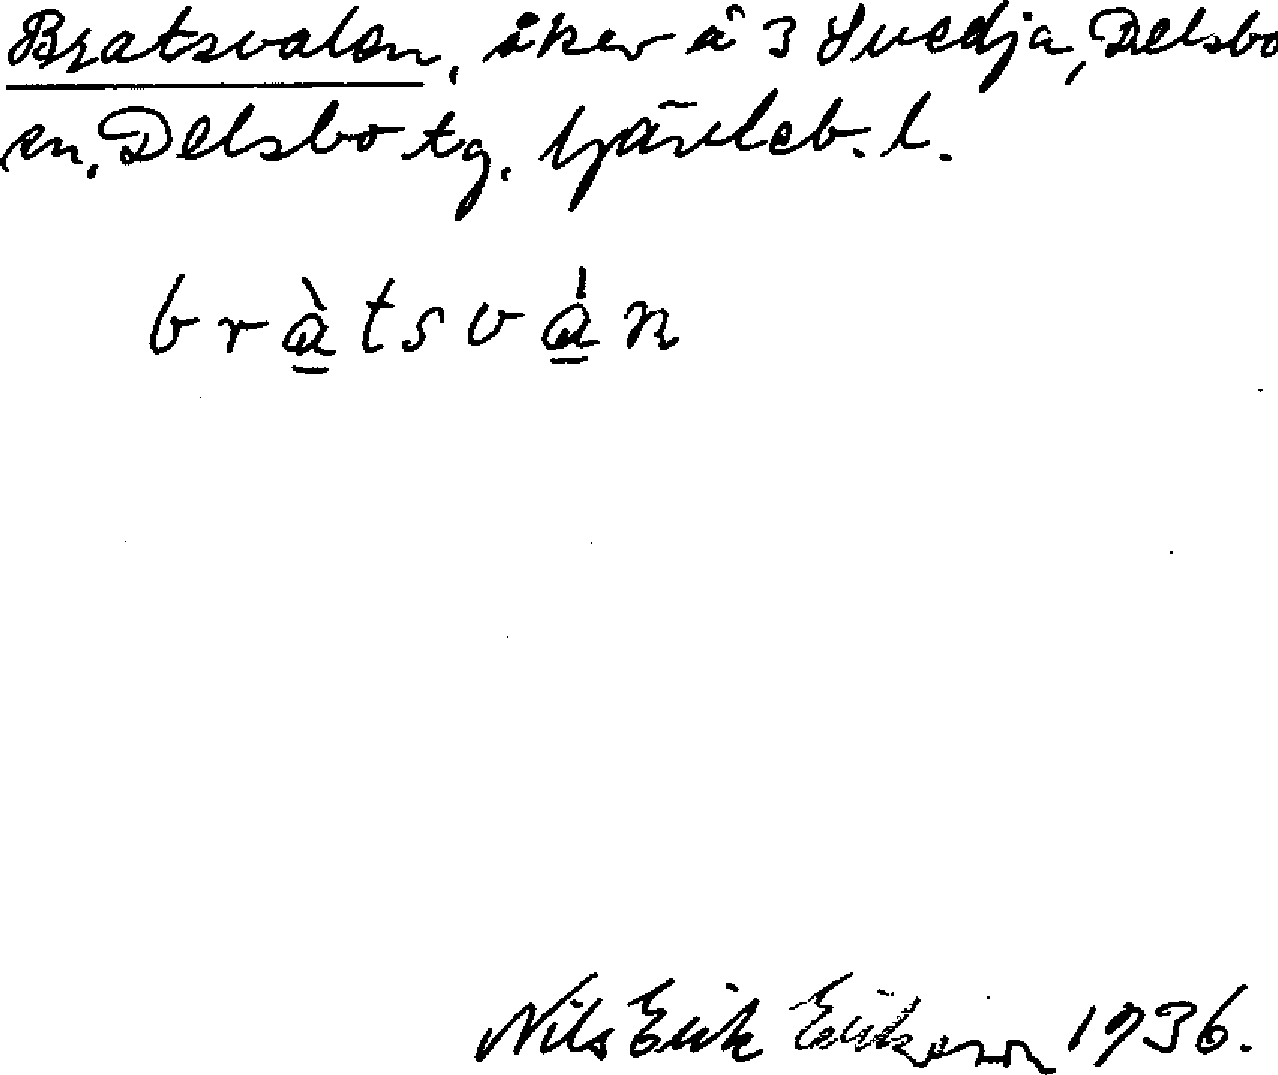 Bratsvalen, åker å 3 Svedja, Delsbo
sn, Delsbo tg. Gävleb. l.
bràtsván
Nils Erik Erikson 1936.